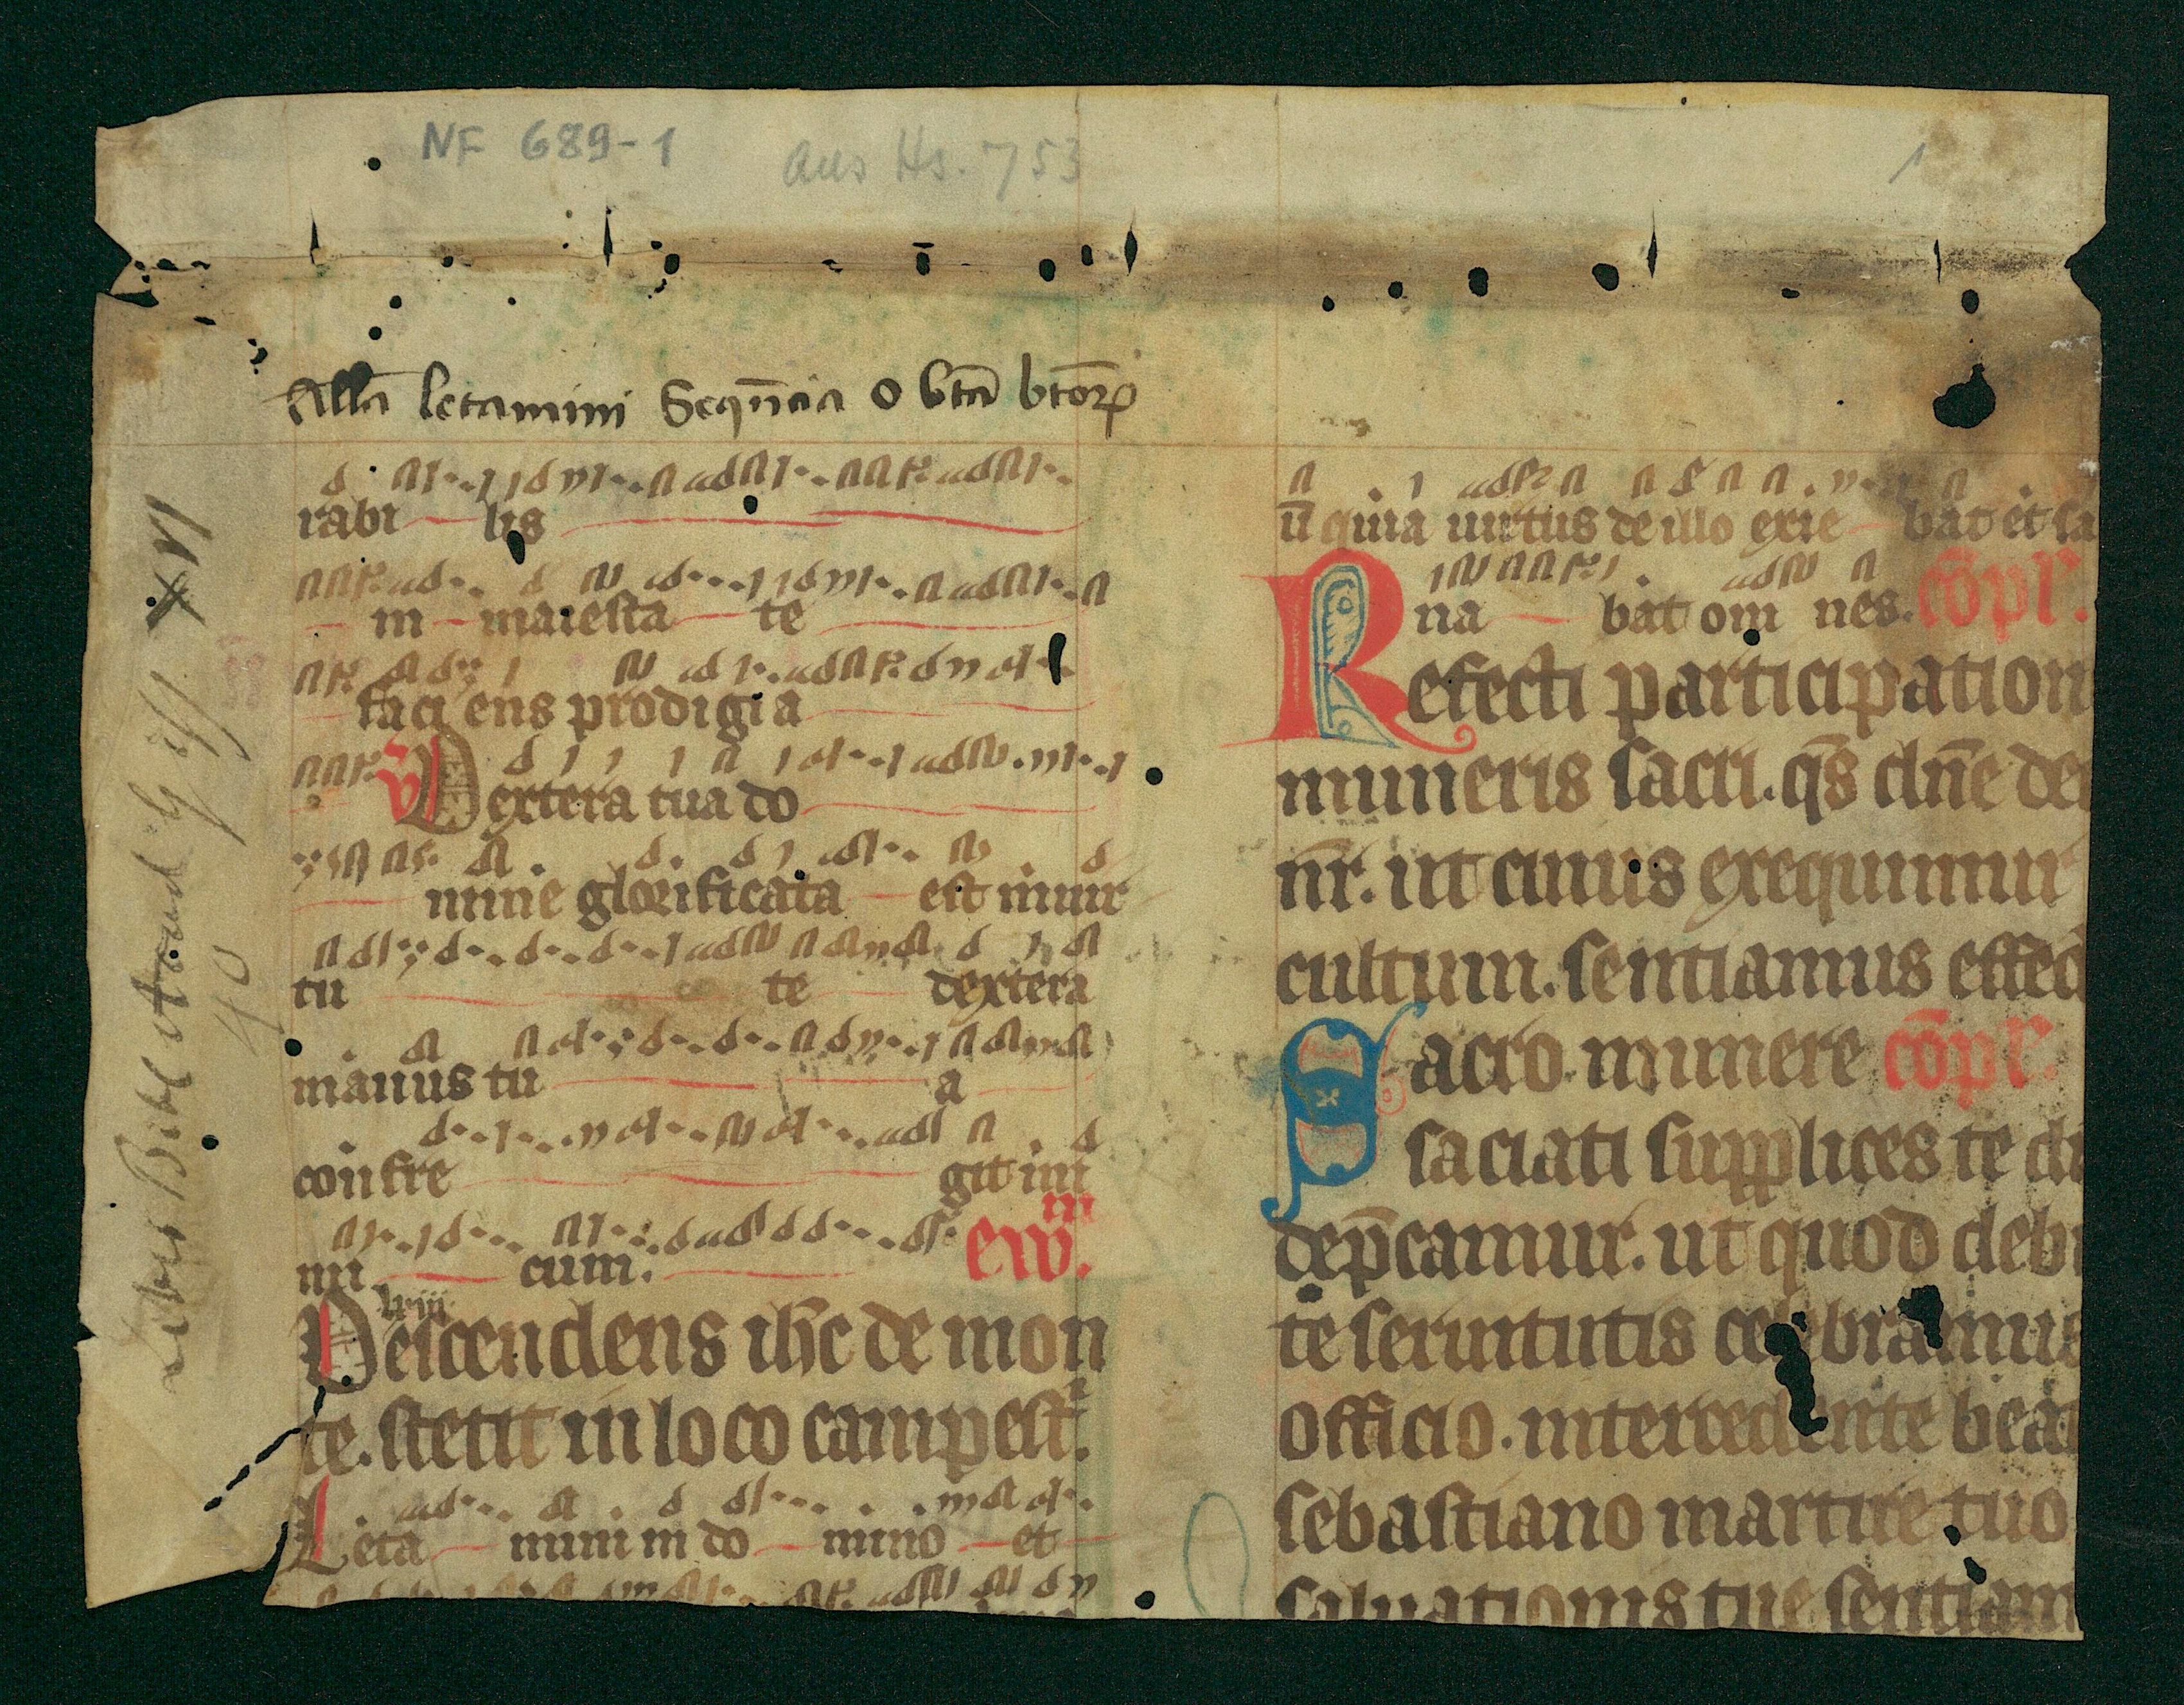 NF 689-1
aus Hs. 753
1
Alla letamini Seqn̄cia O btā btōrꝝ
irabi lis
in maiesta te
faci ens prodigi a
V Dextera tua do
mine glorificata est in uir
tu te dextera
manus tu a
confre git ini
mi cum. ew̄m.
lviii
Descendens ih̄c de mon
te. stetit in loco campest
Leta mini in do mino et
XVI
40
ū quia uirtus de illo exie bat et sa
na bat om nes. cōpl̄.
Refecti participation
muneris sacri. qs̄ dn̄e de
nr̄. ut cuius exequimur
cultum. sentiamus effec
Sacro munere cōpl̄.
saciati supplices te d
dep̄camur. ut quod deb
te seruitutis celebramus
officio. intercedente bea
sebastiano martire tuo
saluationis tue sentiam